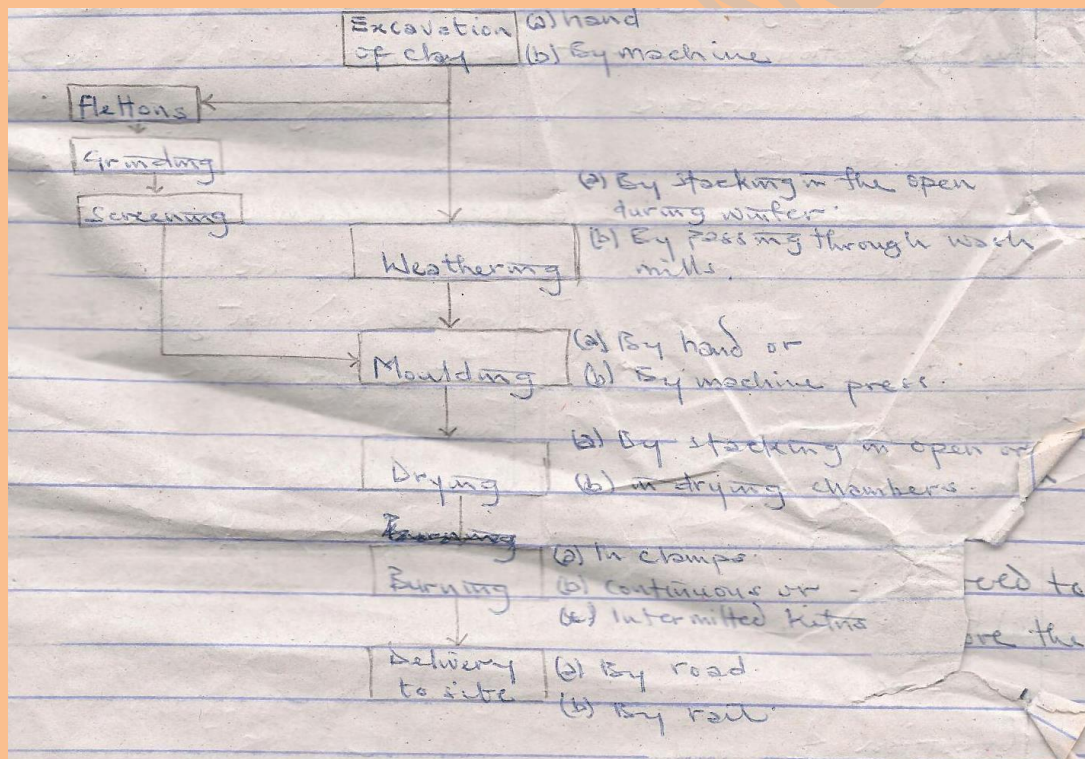 Excavation (a) hand
of clay (b) By machine
Flettons
Grinding
Screening
(a) By stacking in the open
during winter.
Weathering (b) By passing through wash
mills.
Moulding (a) By hand or
(b) By machine press.
Drying (a) By stacking in open or
(b) in drying chambers.
Burning (a) In clamps.
(b) continuous or
(c) Intermitted kilns
Delivery (a) By road.
to site (b) By rail.
ore the